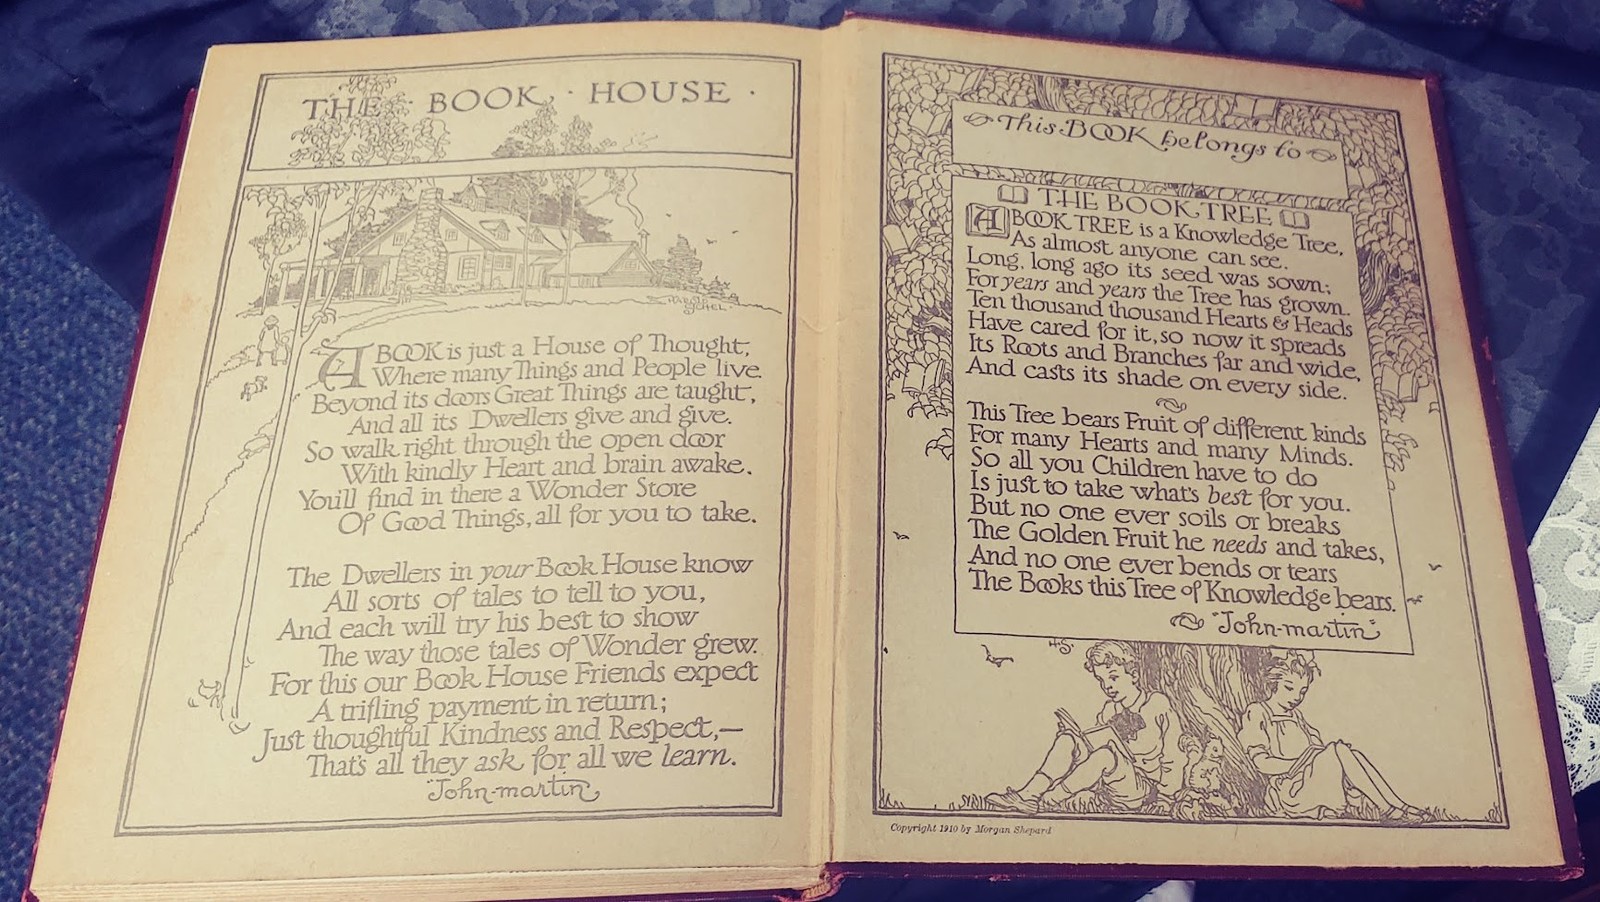 THE · BOOK · HOUSE ·
A BOOK is just a House of Thought,
Where many Things and People live.
Beyond its doors Great Things are taught,
And all its Dwellers give and give.
So walk right through the open door
With kindly Heart and brain awake.
You'll find in there a Wonder Store
Of Good Things, all for you to take.
The Dwellers in your Book House know
All sorts of tales to tell to you,
And each will try his best to show
The way those tales of Wonder grew.
For this our Book House Friends expect
A trifling payment in return;
Just thoughtful Kindness and Respect,—
That's all they ask for all we learn.
"John-martin"
This BOOK belongs to
THE BOOK TREE
A BOOK TREE is a Knowledge Tree,
As almost anyone can see.
Long, long ago its seed was sown;
For years and years the Tree has grown.
Ten thousand thousand Hearts & Heads
Have cared for it, so now it spreads
Its Roots and Branches far and wide,
And casts its shade on every side.
This Tree bears Fruit of different kinds
For many Hearts and many Minds.
So all you Children have to do
Is just to take what's best for you.
But no one ever soils or breaks
The Golden Fruit he needs and takes,
And no one ever bends or tears
The Books this Tree of Knowledge bears.
"John-martin"
H.S.
Copyright 1910 by Morgan Shepard